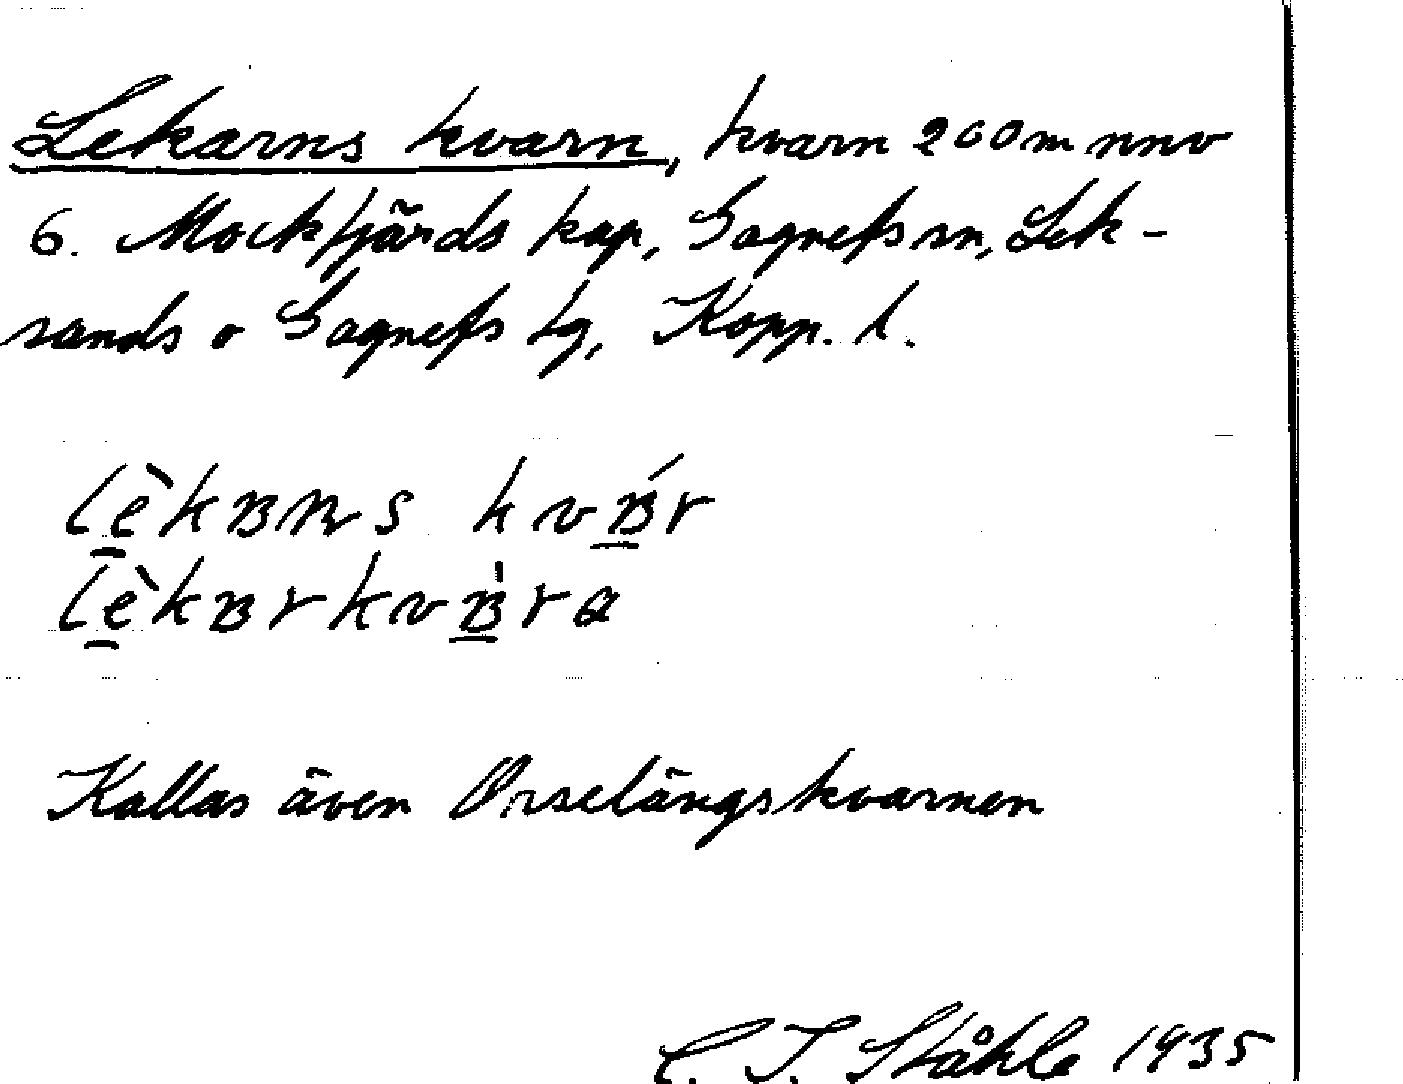 Lekarns kvarn, kvarn 200 m nnv
6. Mockfjärds kap, Gagnefs sn, Lek-
sands o Gagnefs tg, Kopp. l.
Kallas även Orselängskvarnen
C. I. Ståhle 1935